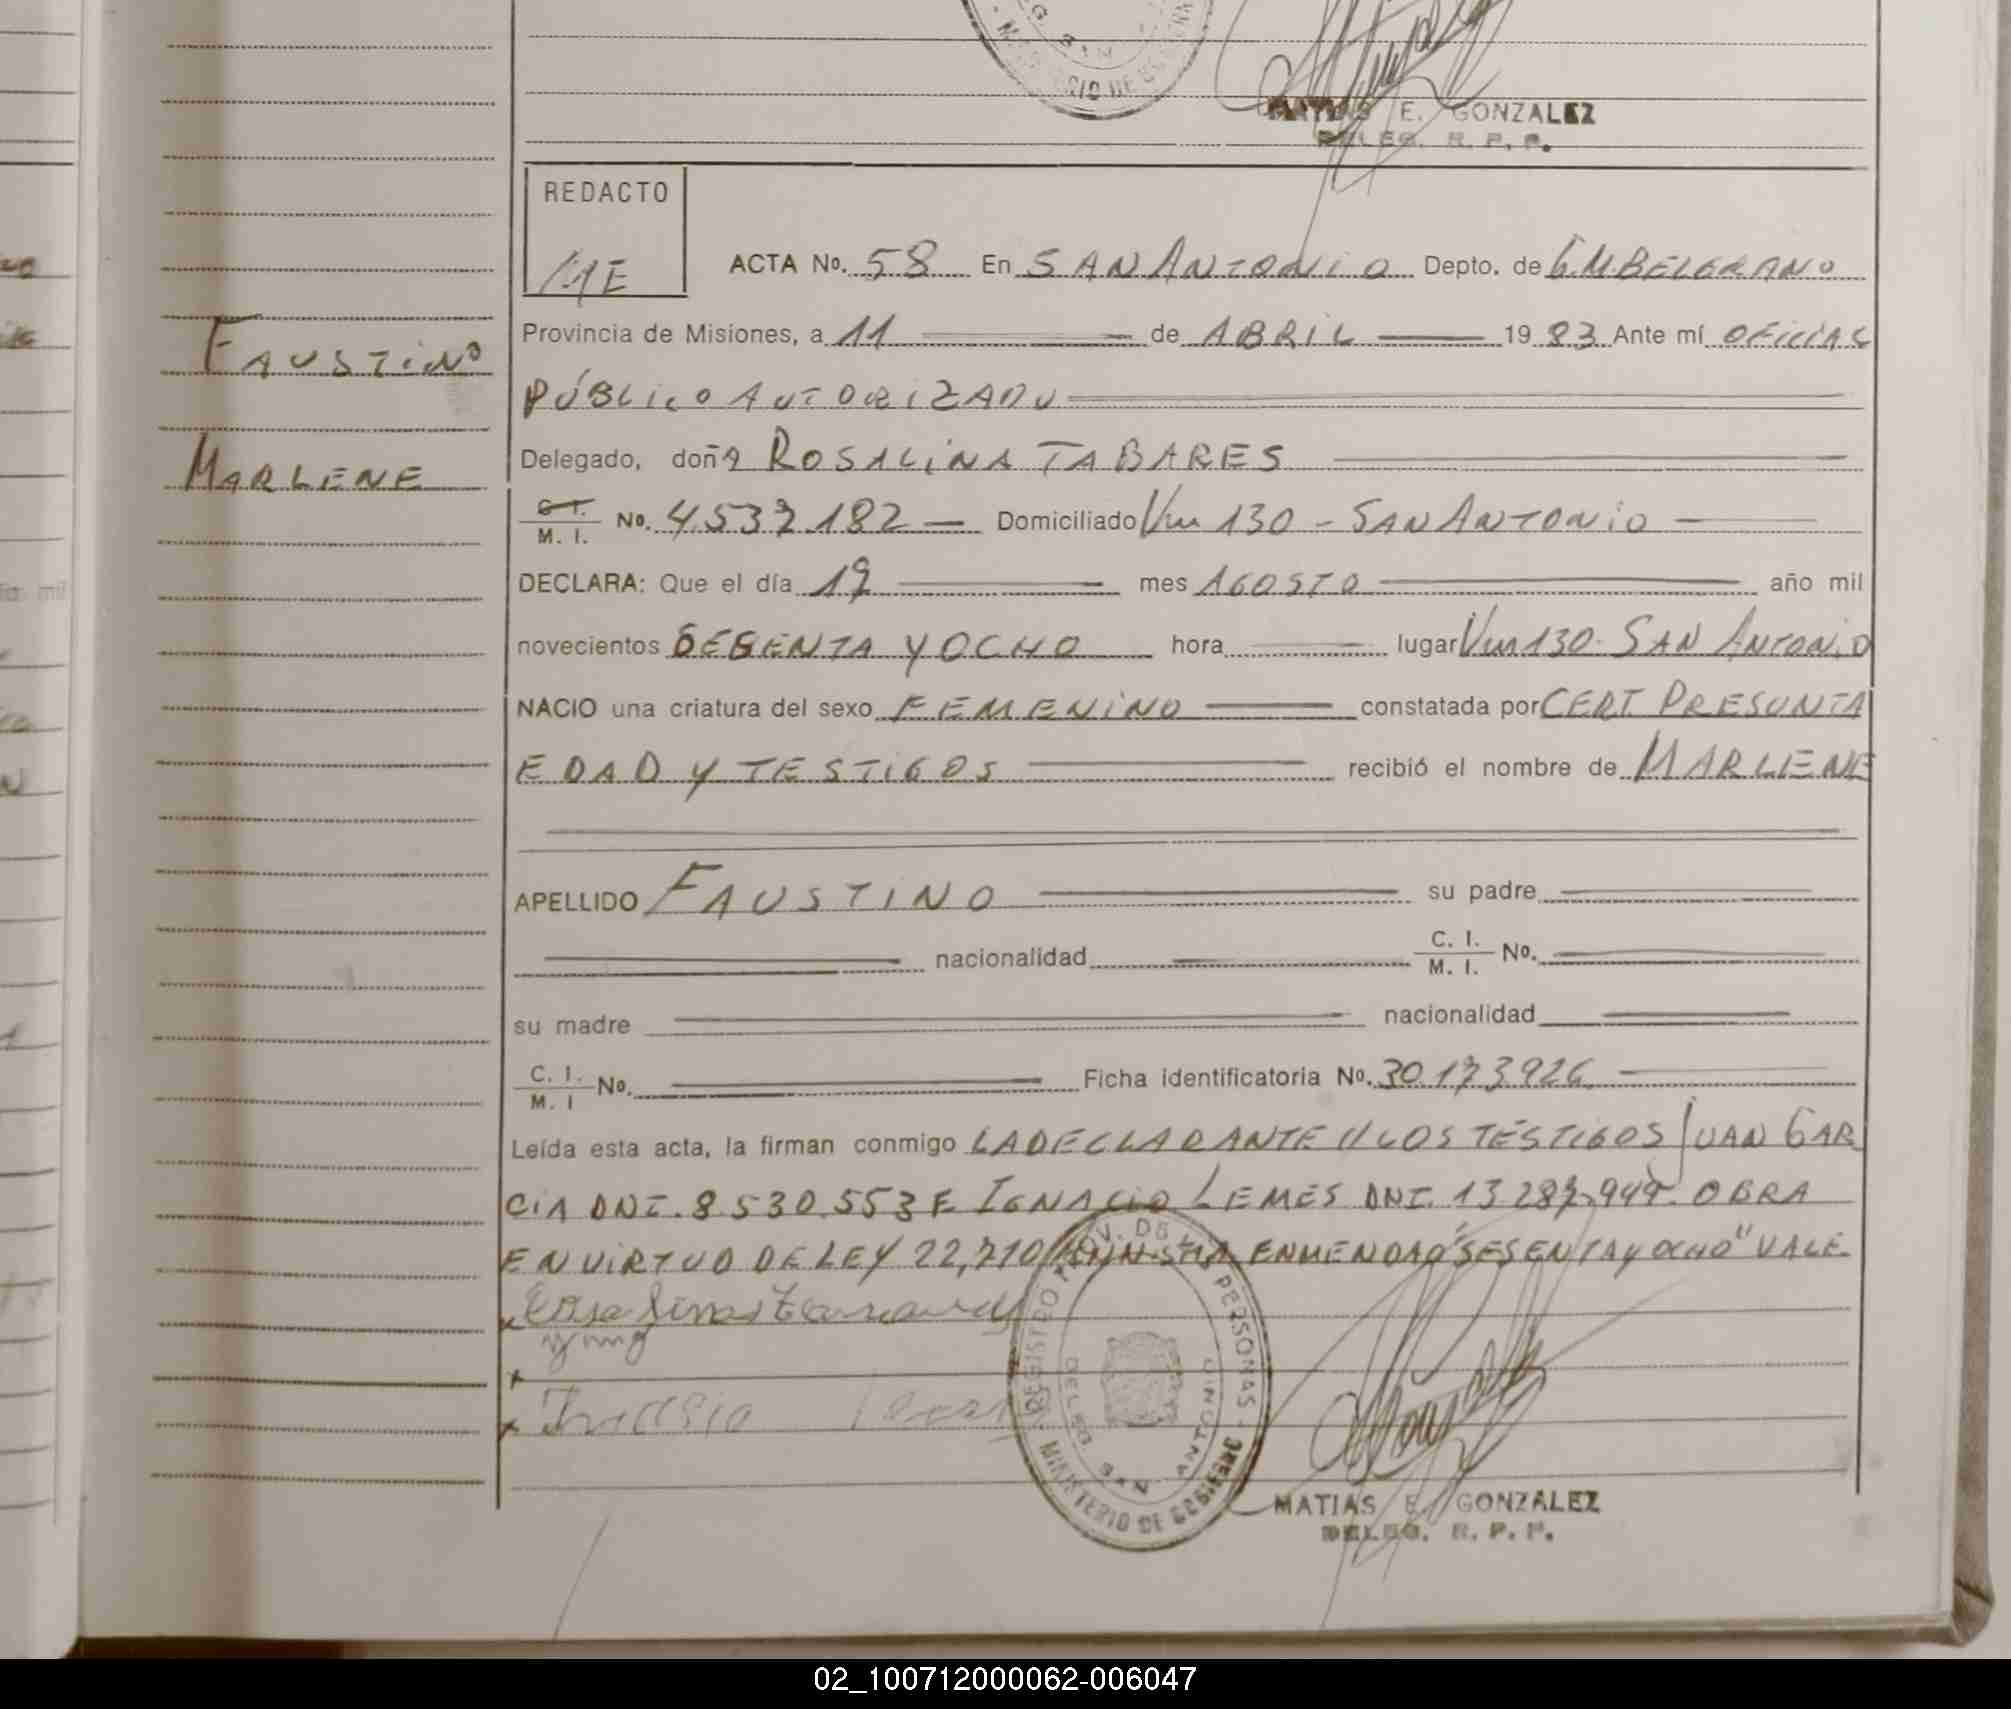 MATIAS E. GONZALEZ
DELEG. R. P. P.
REDACTO
ME
ACTA No. 58 En SAN ANTONIO Depto. de G.M.BELGRANO
Provincia de Misiones, a 11 de ABRIL 1983 Ante mí OFICIAL
PÚBLICO AUTORIZADO
FAUSTINO
MARLENE
Delegado, doña ROSALINA TABARES
C. I.
M. I. No. 4.537.182 Domiciliado Km 130 - SAN ANTONIO
DECLARA: Que el día 17 mes AGOSTO año mil
novecientos SESENTA Y OCHO hora lugar Km 130- SAN ANTONIO
NACIO una criatura del sexo FEMENINO constatada por CERT. PRESUNTA
EDAD Y TESTIGOS recibió el nombre de MARLENE
APELLIDO FAUSTINO su padre
nacionalidad C. I.
M. I. No.
su madre nacionalidad
C. I.
M. I No. Ficha identificatoria No. 30.173.926
Leída esta acta, la firman conmigo LA DECLARANTE Y LOS TESTIGOS JUAN GAR
CIA DNI. 8.530.553 E IGNACIO LEMES DNI. 13.287.949. OBRA
EN VIRTUD DE LEY 22,710 ENMENDADO "SESENTA Y OCHO" VALE
REGISTRO PROV. DE LAS PERSONAS
DELEG. SAN ANTONIO
MINISTERIO DE GOBIERNO
MATIAS E. GONZALEZ
DELEG. R. P. P.
02_100712000062-006047